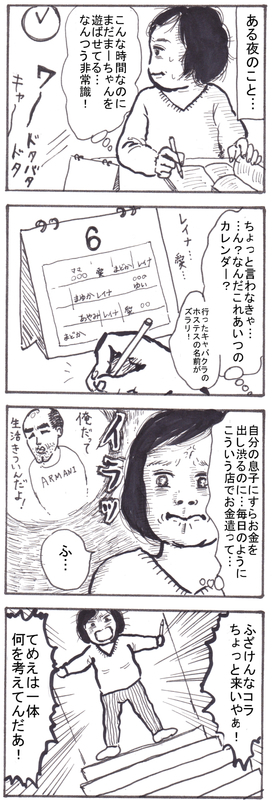 ある夜のこと…
こんな時間なのに
まだまーちゃんを
遊ばせてる…
なんつう非常識！
ワー
ドタバタ
キャー
ドタ
ちょっと言わなきゃ…
…ん？なんだこれあいつの
カレンダー？
レイナ…
愛…
行ったキャバクラの
ホステスの名前が
ズラリ！
6
ママ
○○○
愛
まどか
レイナ
○○○
ゆい
まゆか
レイナ
あやみ
レイナ
愛
○○
まどか
自分の息子にすらお金を
出し渋るのに…毎日のように
こういう店でお金遣って…
イラッ
俺だって
生活きついんだよ！
ARMANI
ふ…
ふざけんなコラ
ちょっと来いやぁ！
てめえは一体
何を考えてんだあ！